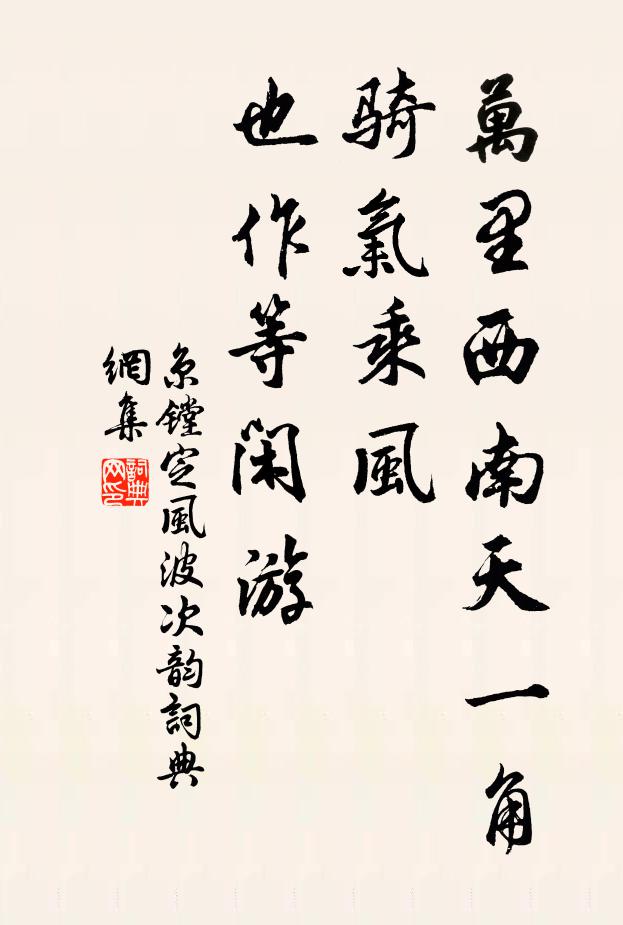 萬里西南天一角
騎氣乘風
也作等閑游
京鏜定風波次韵詞典
網集
詞典
网印